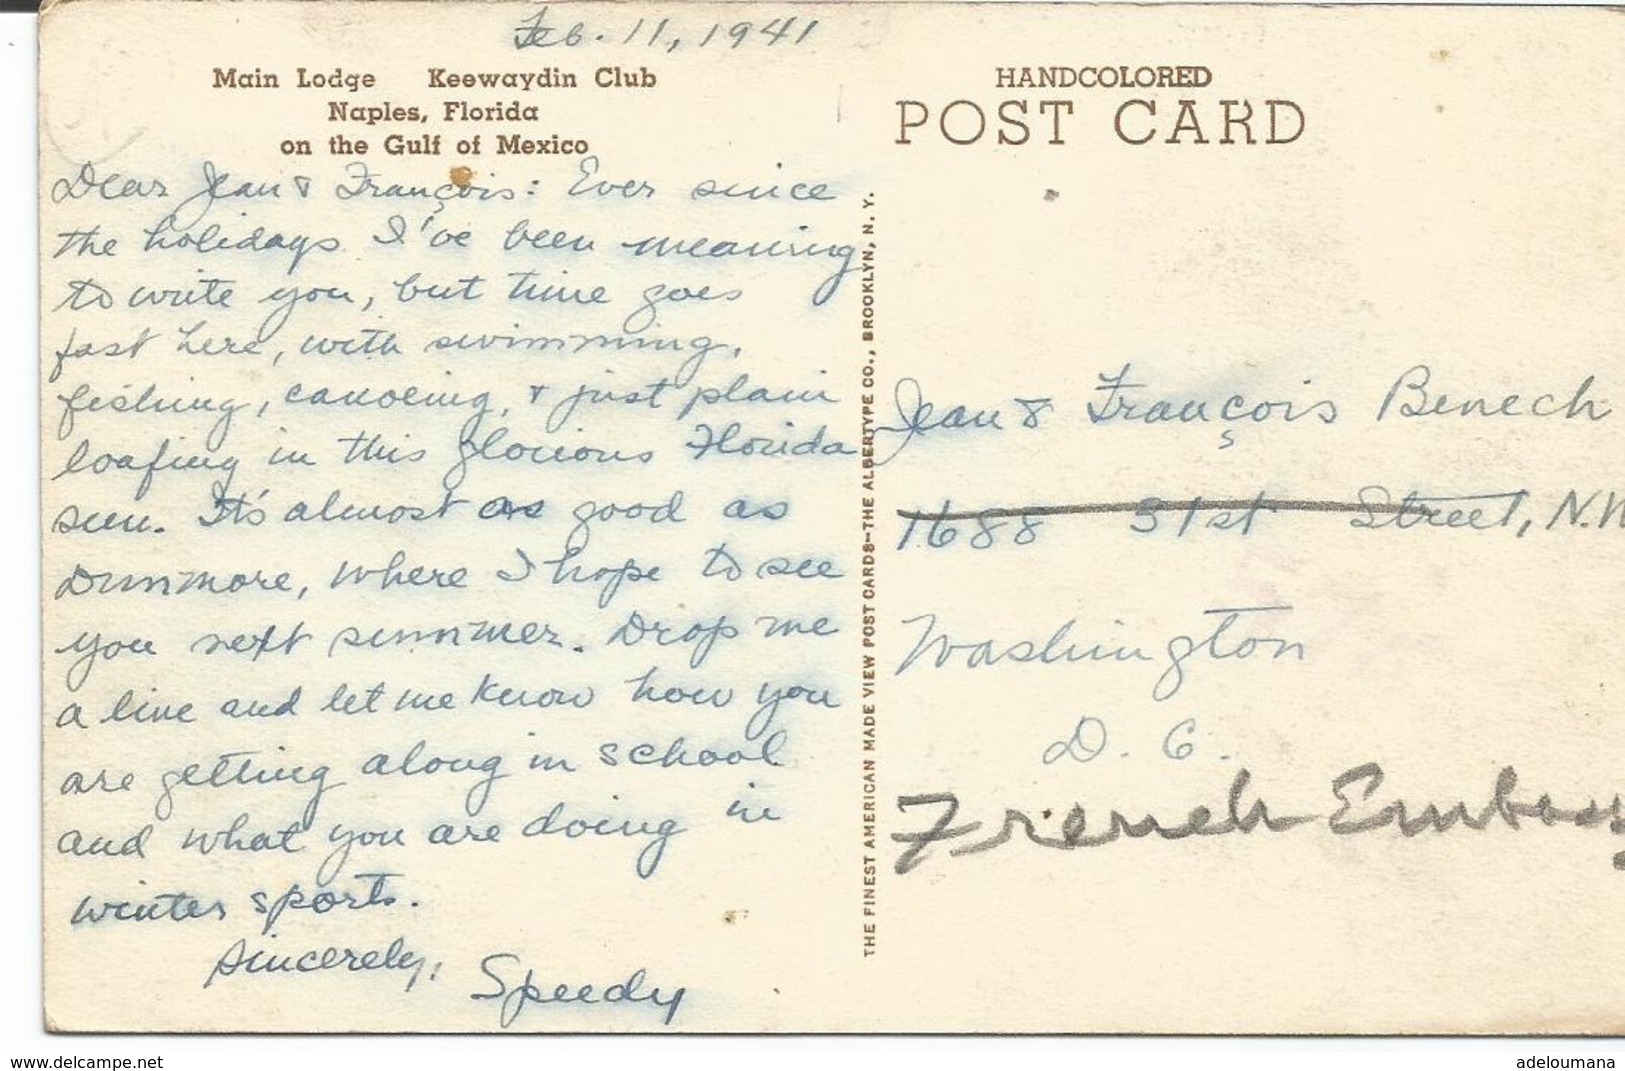 Feb. 11, 1941
Main Lodge Keewaydin Club
Naples, Florida
on the Gulf of Mexico
Dear Jean & François: Ever since
the holidays I've been meaning
to write you, but time goes
fast here, with swimming,
fishing, canoeing, & just plain
loafing in this glorious Florida
sun. It's almost as good as
Dunmore, where I hope to see
you next summer. Drop me
a line and let me know how you
are getting along in school
and what you are doing in
winter sports.
Sincerely,
Speedy
THE FINEST AMERICAN MADE VIEW POST CARDS—THE ALBERTYPE CO., BROOKLYN, N. Y.
HANDCOLORED
POST CARD
Jean & François Benech
1688 31st Street, N.W
Washington
D. C.
French Embassy
www.delcampe.net
adeloumana